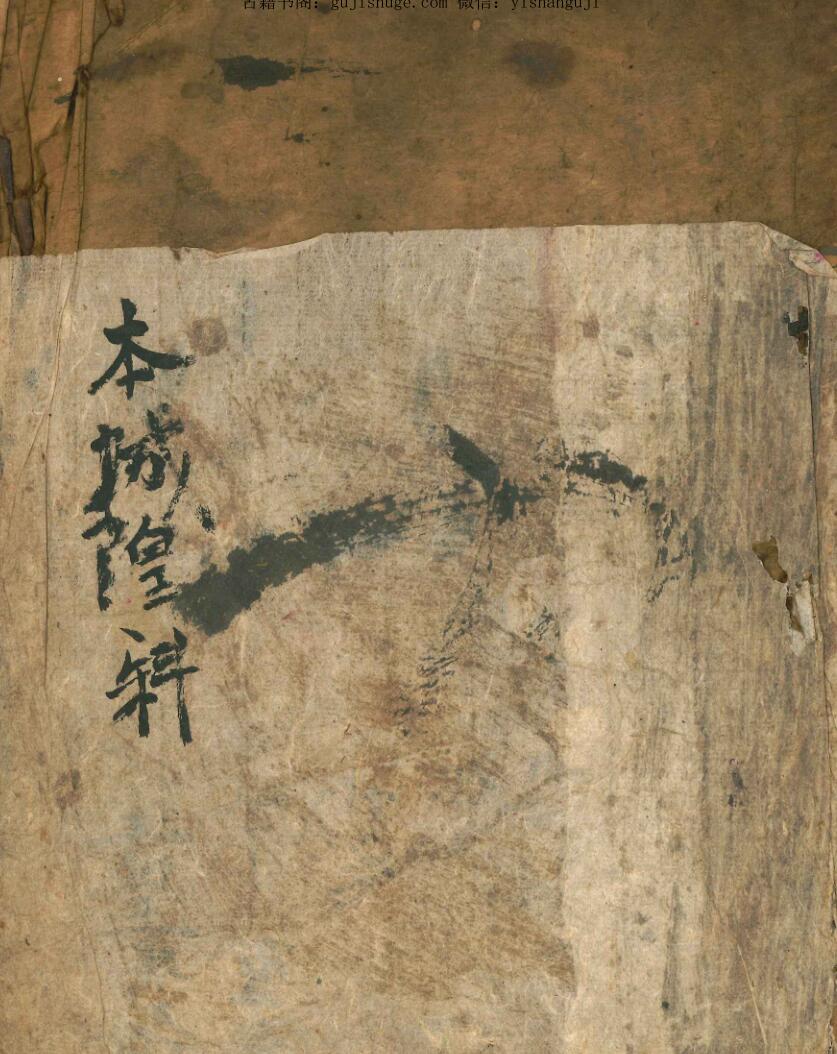 古籍书阁：gujishuge.com 微信：yishanguji
本城隍科